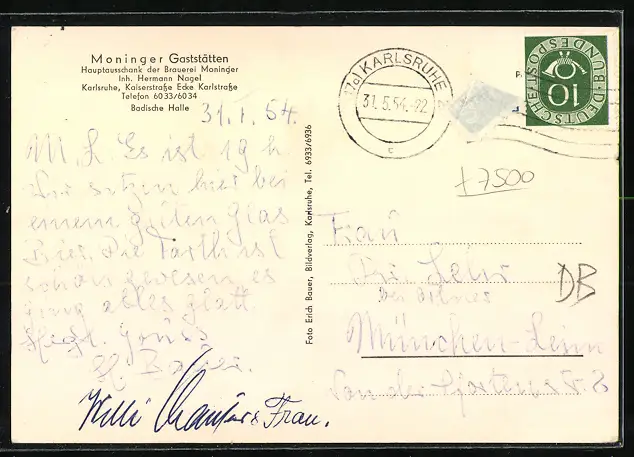 Moninger Gaststätten
Hauptausschank der Brauerei Moninger
Inh. Hermann Nagel
Karlsruhe, Kaiserstraße Ecke Karlstraße
Telefon 6033/6034
Badische Halle
(17a) KARLSRUHE
31.5.54.-22
c
DEUTSCHE BUNDESPOST
10
31.V.54.
M. L. Es ist 19 h.
Wir sitzen hier bei
einem guten Glas
Bier. Die Fahrt ist
schön gewesen, es
ging alles glatt.
Grüss
Willi
Frau.
Foto Erich Bauer, Bildverlag, Karlsruhe, Tel. 6933/6936
+7500
Frau
Lehr
DB
bei
München-Laim
Von der